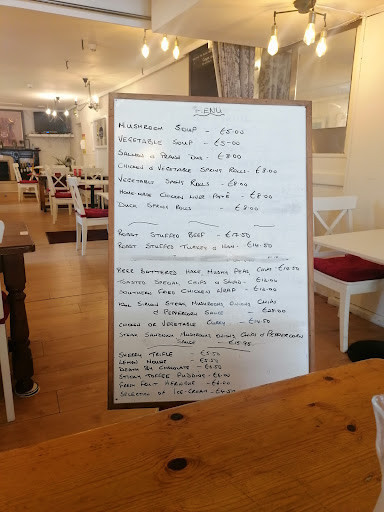 MENU
MUSHROOM SOUP - €5.00
VEGETABLE SOUP - €5-00
SALMON & PRAWN - €8.00
CHICKEN & VEGETABLE SPRING ROLL - €8.00
VEGETABLE SPRING ROLLS - €8.00
HOME-MADE CHICKEN LIVER PATÉ - €8.00
DUCK SPRING ROLLS - €8.00
ROAST STUFFED BEEF - €17.50
ROAST STUFFED TURKEY & HAM - €16.50
BEER BATTERED HAKE MUSHY PEAS CHIPS
TOASTED SPECIAL CHIPS & SALAD -
SOUTHERN FRIED CHICKEN WRAP -
SIRLOIN STEAK MUSHROOMS ONIONS CHIPS
& PEPPERCORN SAUCE - €28.00
CHICKEN OR VEGETABLE CURRY
STEAK SANDWICH MUSHROOMS ONIONS CHIPS & PEPPERCORN
SAUCE - €18.95
SHERRY TRIFLE - €5.50
LEMON MOUSSE - €5.50
DEATH BY CHOCOLATE - €5.50
STICKY TOFFEE PUDDING - €6.00
FRESH FRUIT
SELECTION OF ICE-CREAM - €4.50